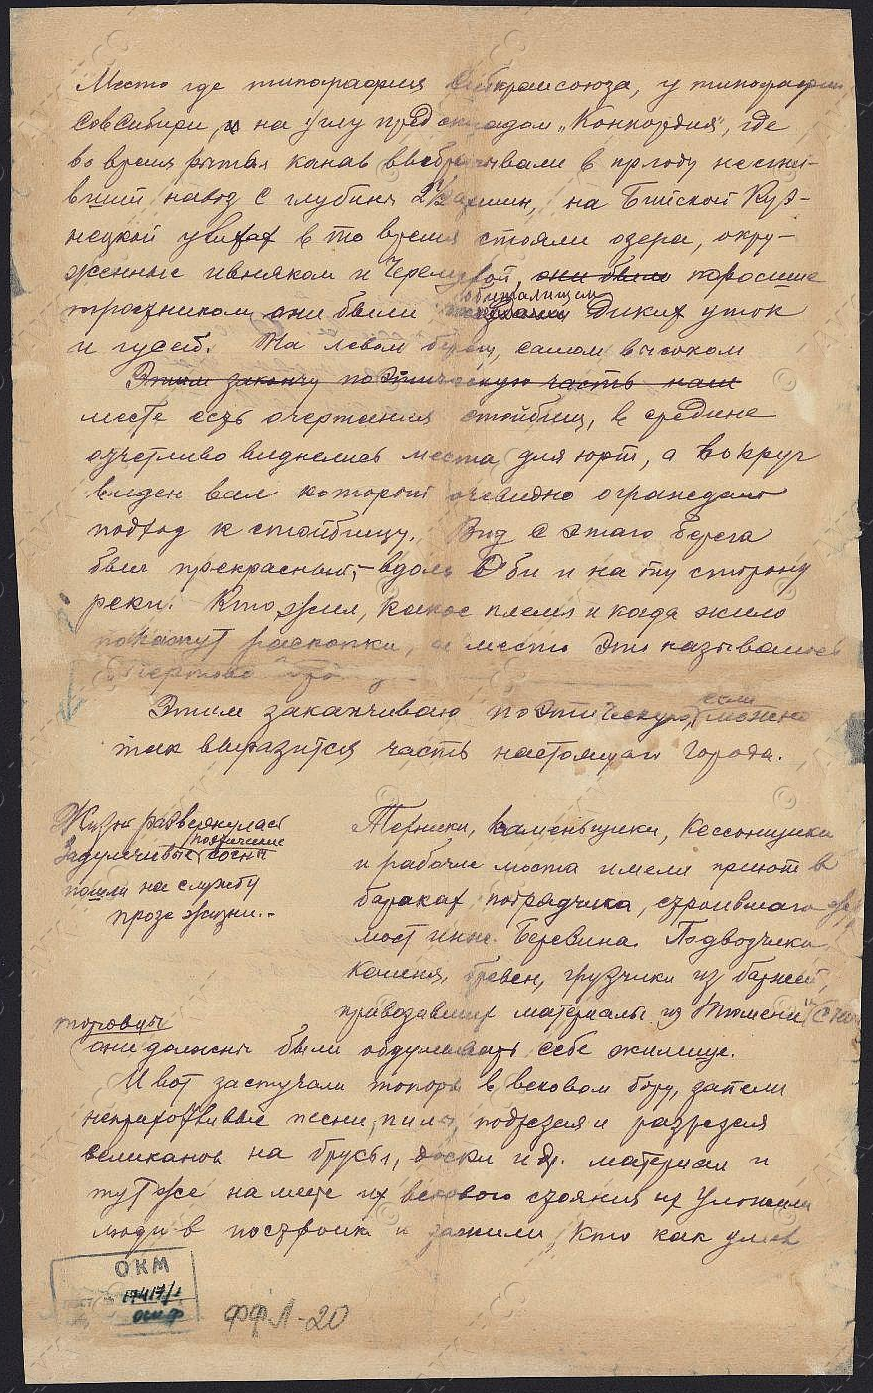 Место где типография Сибкрайсоюза, у типографии
Совсибири, и на углу пред складом „Конкордия", где
во время рытья канав выбрасывали в пргоду несгни-
вший навоз с глубины 2½ аршин, на Бийской Куз-
нецкой улицах в то время стояли озера, окру-
женные ивняком и Черемухой, они были поросшие
тростником они были обиталищем Диких уток
и гусей. На левом берегу, самом высоком
Этим закончу поэтическую часть наш
месте есть очертания стойбищ, в средине
отчетливо виднелись места для юрт, а вокруг
виден вал который очевидно ограждал
подход к стойбищу. Вид с этаго берега
был прекрасный, – вдоль Оби и на ту сторону
реки. Кто жил, какое племя и когда жило
покажут раскопки, а место это называлось
Чертово
Этим заканчиваю поэтическую, если можно
так выразится часть настоящаго города.
Жизнь развернулась
Задумчивые сосны
пошли на службу
проза жизни..
Терники, каменьщики, Кессонщики
и рабочие моста имели приют в
бараках подрядчика, строившаго
мост инж. Березина. Подвозчики
камня, бревен, грузчики из баржей,
привозавших материалы из Тюмени
торговцы
они должны были обдумывать себе жилище.
И вот застучали топоры в вековом бору, запели
неприхотливые песни, пилы, подрезая и разрезая
великанов на брусы, доски и др. материал и
тут же на месте их векового стояния их уложили
люди в постройки и зажили, кто как умел
ОКМ
17417/1
ФФЛ-20